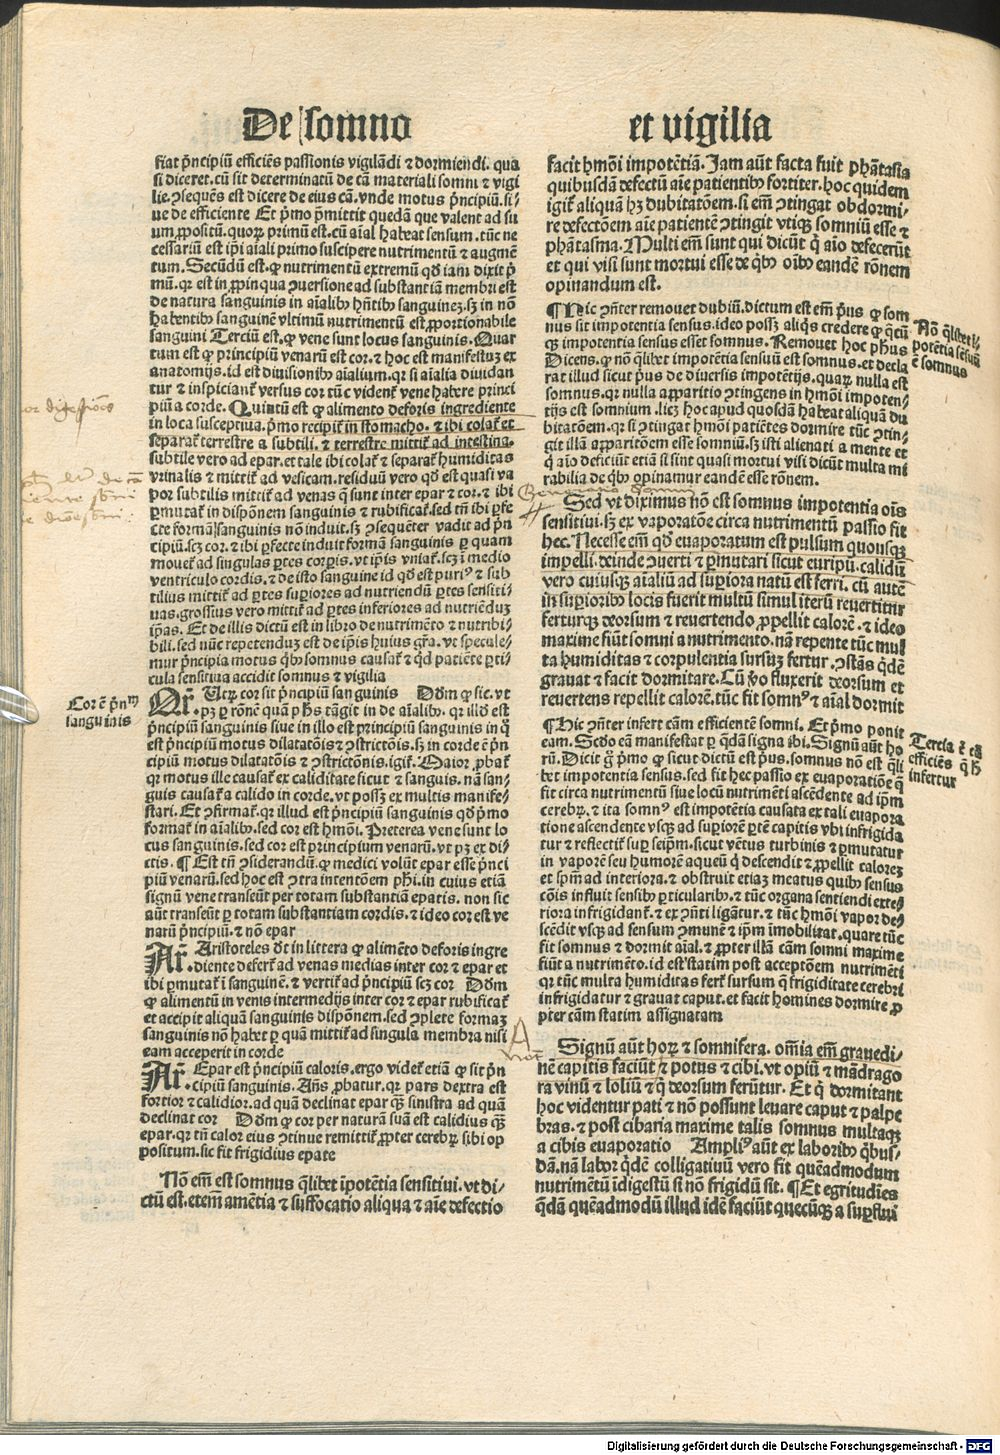 De somno
et vigilia
fiat pͥncipiū efficiēs passionis vigilādi ⁊ dormiendi. qua
si diceret. cū sit determinatū de cā materiali somni ⁊ vigi
lie. ꝯsequēs est dicere de eius cā. vnde motus pͥncipiū. si⸗
ue de efficiente Et pͥmo pͥmittit quedā que valent ad su
um ꝓpositū. quoꝝ primū est. cū aīal habeat sensum. tūc ne
cessariū est ip̄i aīali primo suscipere nutrimentū ⁊ augmē
tum. Secūdū est. ꝙ nutrimentū extremū qd̄ iam dixit pͥ
mū. qꝛ est in ꝓpinqua ꝯuersione ad substantiā membri est
de natura sanguinis in aīalibꝰ hn̄tibꝰ sanguineꝫ. sꝫ in nō
habentibꝰ sanguinē vltimū nutrimentū est ꝓportionabile
sanguini Terciū est. ꝙ vene sunt locus sanguinis. Quar
tum est ꝙ principiū venarū est cor. ⁊ hoc est manifestuꝫ ex
anatomijs. id est diuisionibꝰ aīalium. qꝛ si aīalia diuidan
tur ⁊ inspiciant̄ versus cor tūc vident̄ vene habere princi
piū a corde. Quintū est ꝙ alimento deforis ingrediente
in loca susceptiua. pͥmo recipit̄ in stomacho. ⁊ ibi colat̄ et
separat̄ terrestre a subtili. ⁊ terrestre mittit̄ ad intestina.
subtile vero ad epar. et tale ibi colat̄ ⁊ separat̄ humiditas
vrinalis ⁊ mittit̄ ad vesicam. residuū vero qd̄ est quasi va
por subtilis mittit̄ ad venas q̄ sunt inter epar ⁊ cor. ⁊ ibi
ꝑmutat̄ in dispōnem sanguinis ⁊ rubificat̄. sed tn̄ ibi ꝑfe
cte formā sanguinis nō induit. sꝫ ꝯsequēter vadit ad pͥn
cipiū. sꝫ cor. ⁊ ibi ꝑfecte induit formā sanguinis ꝑ quam
mouet̄ ad singulas ꝑtes corꝑis. vt ip̄is vniat̄. sꝫ ī medio
ventriculo cordis. ⁊ de isto sanguine id qd̄ est puriꝰ ⁊ sub
tilius mittit̄ ad ꝑtes suꝑiores ad nutriendū ꝑtes sensiti⸗
uas. grossius vero mittit̄ ad ꝑtes inferiores ad nutriēduꝫ
ip̄as. Et de illis dictū est in libro de nutrimēto ⁊ nutribi⸗
bili. sed nūc repetenduꝫ est de ip̄is huius gr̄a. vt specule⸗
mur pͥncipia motus q̄bꝰ somnus causat̄ ⁊ qd̄ patiēte ꝑti
cula sensitiua accidit somnus ⁊ vigilia
Cor ē pͥnᵐ
sanguinis
Qr̄. Utꝝ cor sit pͥncipiū sanguinis Dōm ꝙ sic. vt
pꝫ ꝑ rōnē quā ph̄s tāgit in de aīalibꝰ. qꝛ illd̄ est
pͥncipiū sanguinis siue in illo est pͥrncipiū sanguinis in q̊
est pͥncipiū motus dilatatōīs ⁊ ꝯstrictōīs. sꝫ in corde ē pͥn
cipiū motus dilatatōīs ⁊ ꝯstrictōnis. igit̄. Maior ꝓbat̄
qꝛ motus ille causat̄ ex caliditate sicut ⁊ sanguis. nā san⸗
guis causat̄ a calido in corde. vt possꝫ ex multis manife⸗
stari. Et ꝯfirmat̄. qꝛ illud est pͥncipiū sanguinis qd̄ pͥmo
format̄ in aīalibꝰ. sed cor est hmōi. Preterea vene sunt lo
cus sanguinis. sed cor est principium venarū. vt pꝫ ex di⸗
ctis. ¶ Est tn̄ ꝯsiderandū. ꝙ medici volūt epar esse pͥnci
piū venarū. sed hoc est ꝯtra intentōem ph̄i. in cuius etiā
signū vene transeūt per totam substantiā epatis. non sic
aūt transeūt ꝑ totam substantiam cordis. ⁊ ideo cor est ve
narū pͥncipiū. ⁊ nō epar
Ar̄. Aristoteles dt̄ in littera ꝙ alimēto deforis ingre
diente defert̄ ad venas medias inter cor ⁊ epar et
ibi ꝑmutat̄ ī sanguinē. ⁊ vertit̄ ad pͥncipiū scꝫ cor Dōm
ꝙ alimentū in venis intermedijs inter cor ⁊ epar rubificat̄
et accipit aliquā sanguinis dispōnem. sed ꝯplete formaꝫ
sanguinis nō habet ꝑ quā mittit̄ ad singula membra nisi
eam acceperit in corde
Ar̄. Epar est pͥncipiū caloris. ergo videt̄ etiā ꝙ sit pͥn
cipiū sanguinis. Añs ꝓbatur. qꝛ pars dextra est
fortior ⁊ calidior. ad quā declinat epar ꝙ̄ sinistra ad quā
declinat cor Dōm ꝙ cor per naturā suā est calidius ꝙ̄
epar. qꝛ tn̄ calor eius ꝯtinue remittit̄ ꝓpter cerebꝝ sibi op
positum. sic fit frigidius epate
Nō em̄ est somnus q̄libet īpotētia sensitiui. vt di⸗
ctū est. etem̄ amētia ⁊ suffocatio aliqua ⁊ aīe defectio
facit hmōi impotētiā. Jam aūt facta fuit phātasia
quibusdā defectū aīe patientibꝰ fortiter. hoc quidem
igit̄ aliquā hꝫ dubitatōem. si em̄ ꝯtingat obdormi⸗
re defectōem aīe patientē ꝯtingit vtiqꝫ somniū esse ⁊
phātasma. Multi em̄ sunt qui dicūt q̄ aīo defecerūt
et qui visi sunt mortui esse de q̄bꝰ oībꝰ eandē rōnem
opinandum est.
¶ Hic ꝯn̄ter remouet dubiū. dictum est em̄ pͥus ꝙ som
nus sit impotentia sensus. ideo possꝫ aliqͥs credere ꝙ q̄cū
qꝫ impotentia sensus esset somnus. Remouet hoc ph̄us
Dicens. ꝙ nō q̄libet impotētia sensuū est somnus. et decla
rat illud sicut pͥus de diuersis impotētijs. quaꝝ nulla est
somnus. qꝛ nulla apparitio ꝯtingens in hmōi impoten⸗
tijs est somnium. licꝫ hoc apud quosdā habeat aliquā du
bitatōem. qꝛ si ꝯtingat hmōi patiētes dormire tūc ꝯtin⸗
git illā apparitōem esse somniū. sꝫ isti alienati a mente et
q̄ aīo deficiūt etiā si sint quasi mortui visi dicūt multa mi
rabilia de q̄bꝰ opinamur eandē esse rōnem.
Nō q̄libet i⸗
potētia sēsuū
ē somnus
Sed vt diximus nō est somnus impotentia oīs
sensitiui. sꝫ ex vaporatōe circa nutrimentū passio fit
hec. Necesse em̄ qd̄ euaporatum est pulsum quousqꝫ
impelli. deinde ꝯuerti ⁊ ꝑmutari sicut euripū. calidū
vero cuiusqꝫ aīaliū ad suꝑiora natū est ferri. cū autē
in suꝑioribꝰ locis fuerit multū simul iterū reuertitur
ferturqꝫ deorsum ⁊ reuertendo ꝓpellit calorē. ⁊ ideo
maxime fiūt somni a nutrimento. nā repente tūc mul
ta humiditas ⁊ corpulentia sursuꝫ fertur. ꝯstās qͥdē
grauat ⁊ facit dormitare. Cū v̊o fluxerit deorsum et
reuertens repellit calorē. tūc fit somnꝰ ⁊ aīal dormit
¶ Hic ꝯn̄ter infert cām efficientē somni. Et pͥmo ponit
eam. Scd̄o eā manifestat ꝑ q̄dā signa ibi. Signū aūt ho
rū. Dicit g̊ pͥmo ꝙ sicut dictū est pͥus. somnus nō est q̄li
bet impotentia sensus. sed fit hec passio ex euaporatiōe q̄
fit circa nutrimentū siue locū nutrimēti ascēdente ad ip̄m
cerebꝝ. ⁊ ita somnꝰ est impotētia causata ex tali euapora
tione ascendente vsqꝫ ad suꝑiorē ꝑtē capitis vbi infrigida
tur ⁊ reflectit̄ suꝑ seip̄m. sicut vētus turbinis ⁊ ꝑmutatur
in vaporē seu humorē aqueū q̄ descendit ⁊ ꝓpellit caloreꝫ
et sp̄m ad interiora. ⁊ obstruit etiaꝫ meatus quibꝰ sensus
cōis influit sensibꝰ ꝑticularibꝰ. ⁊ tūc organa sentiendi exte⸗
riora infrigidant̄. ⁊ ex ꝯn̄ti ligātur. ⁊ tūc hmōi vapor de⸗
scēdit vsqꝫ ad sensum ꝯmunē ⁊ ip̄m imobilitat. quare tūc
fit somnus ⁊ dormit aīal. ⁊ ꝓpter illā cām somni maxime
fiūt a nutrimēto. id est statim post acceptōem nutrimēti
qꝛ tūc multa humiditas fert̄ sursum q̄ frigiditate cerebri
infrigidatur ⁊ grauat caput. et facit homines dormire ꝓ
pter cām statim assignatam
Tercia ē cā
efficiēs q̄ hͥ
infertur
Signū aūt hoꝝ ⁊ somnifera. oīmia em̄ grauedi⸗
nē capitis faciūt ⁊ potus ⁊ cibi. vt opiū ⁊ mādrago
ra vinū ⁊ loliū ⁊ q̄ deorsum ferūtur. Et q̄ dormitant
hoc videntur pati ⁊ nō possunt leuare caput ⁊ palpe
bras. ⁊ post cibaria maxime talis somnus multaqꝫ
a cibis euaporatio Ampliꝰ aūt ex laboribꝰ q̄bus⸗
dā. nā labor qͥdē colligatiuū vero fit quēadmodum
nutrimētū īdigestū si nō frigidū sit. ¶ Et egritudīes
q̄dā quēadmodū illud idē faciūt quecūqꝫ a suꝑflui
Digitalisierung gefördert durch die Deutsche Forschungsgemeinschaft - DFG